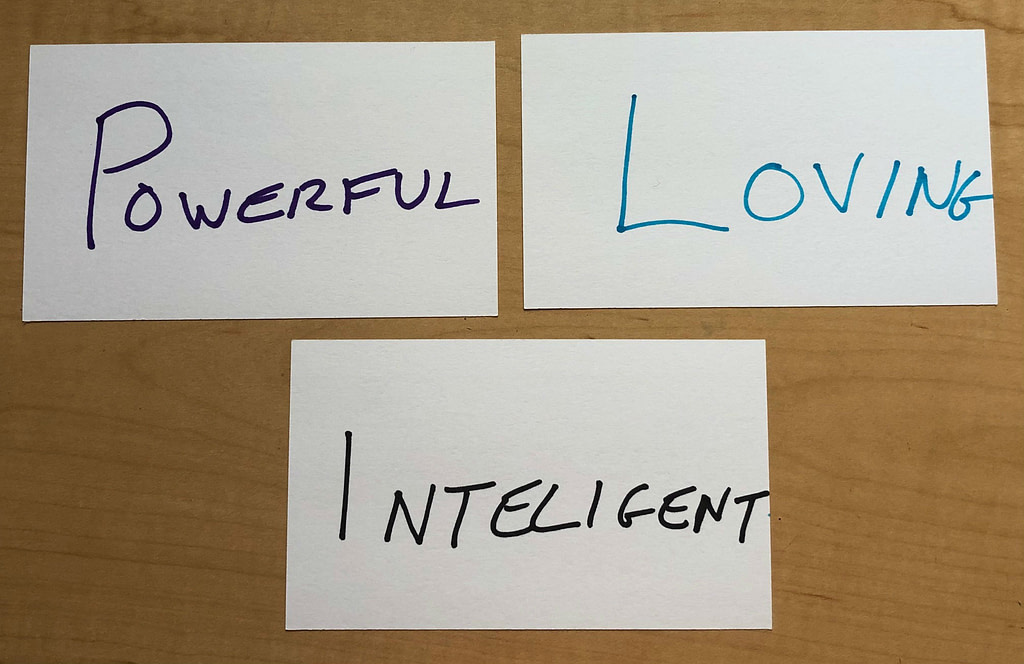 POWERFUL
LOVING
INTELIGENT